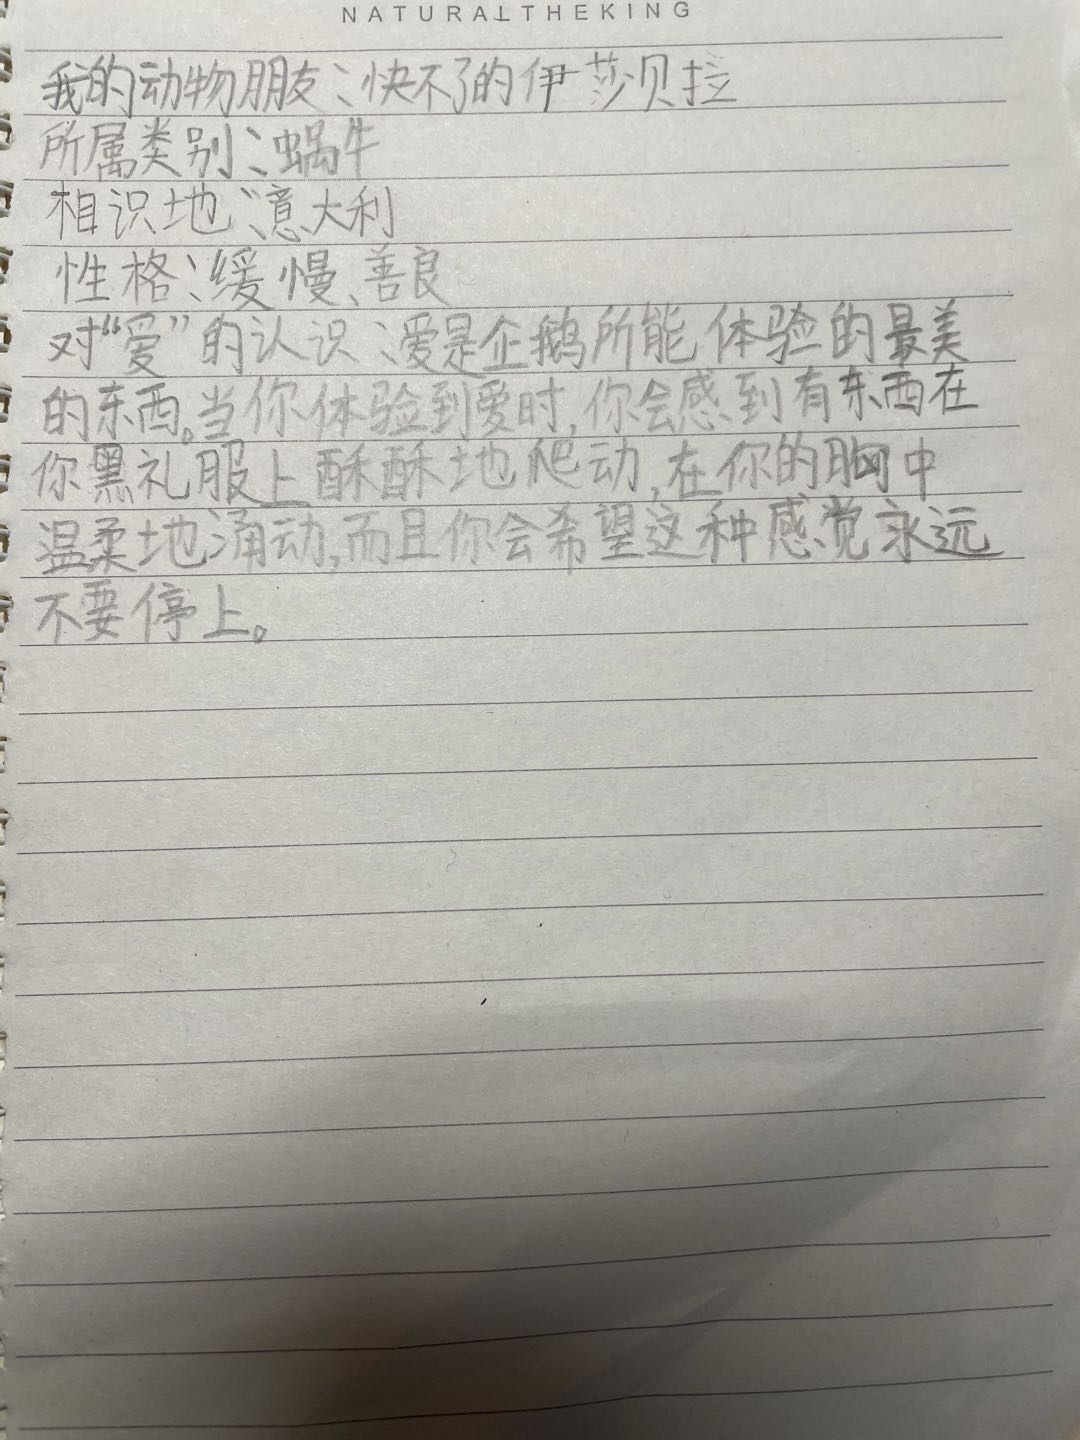 NATURALTHEKING
我的动物朋友：快不了的伊莎贝拉
所属类别：蜗牛
相识地：意大利
性格：缓慢、善良
对“爱”的认识：爱是企鹅所能体验的最美
的东西。当你体验到爱时，你会感到有东西在
你黑礼服上酥酥地爬动，在你的胸中
温柔地涌动，而且你会希望这种感觉永远
不要停上。